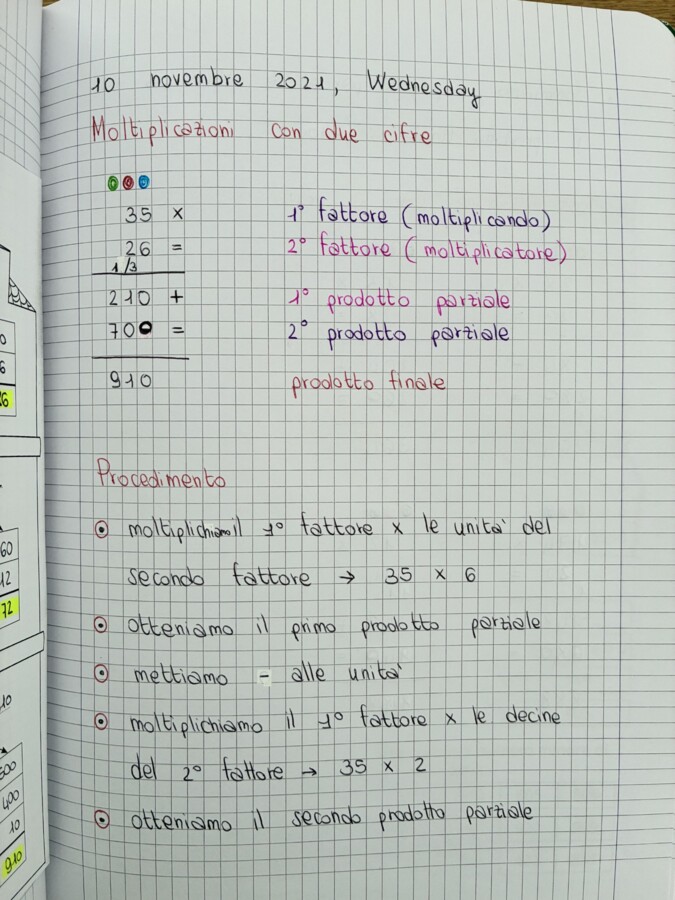 10 novembre 2021, Wednesday
Moltiplicazioni con due cifre
35 x 1° fattore (moltiplicando)
26 = 2° fattore (moltiplicatore)
1/3
210 + 1° prodotto parziale
700 = 2° prodotto parziale
910 prodotto finale
Procedimento
moltiplichiamo il 1° fattore x le unità del
secondo fattore → 35 x 6
otteniamo il primo prodotto parziale
mettiamo - alle unità
moltiplichiamo il 1° fattore x le decine
del 2° fattore → 35 x 2
otteniamo il secondo prodotto parziale
0
6
6
60
12
72
10
500
400
10
910